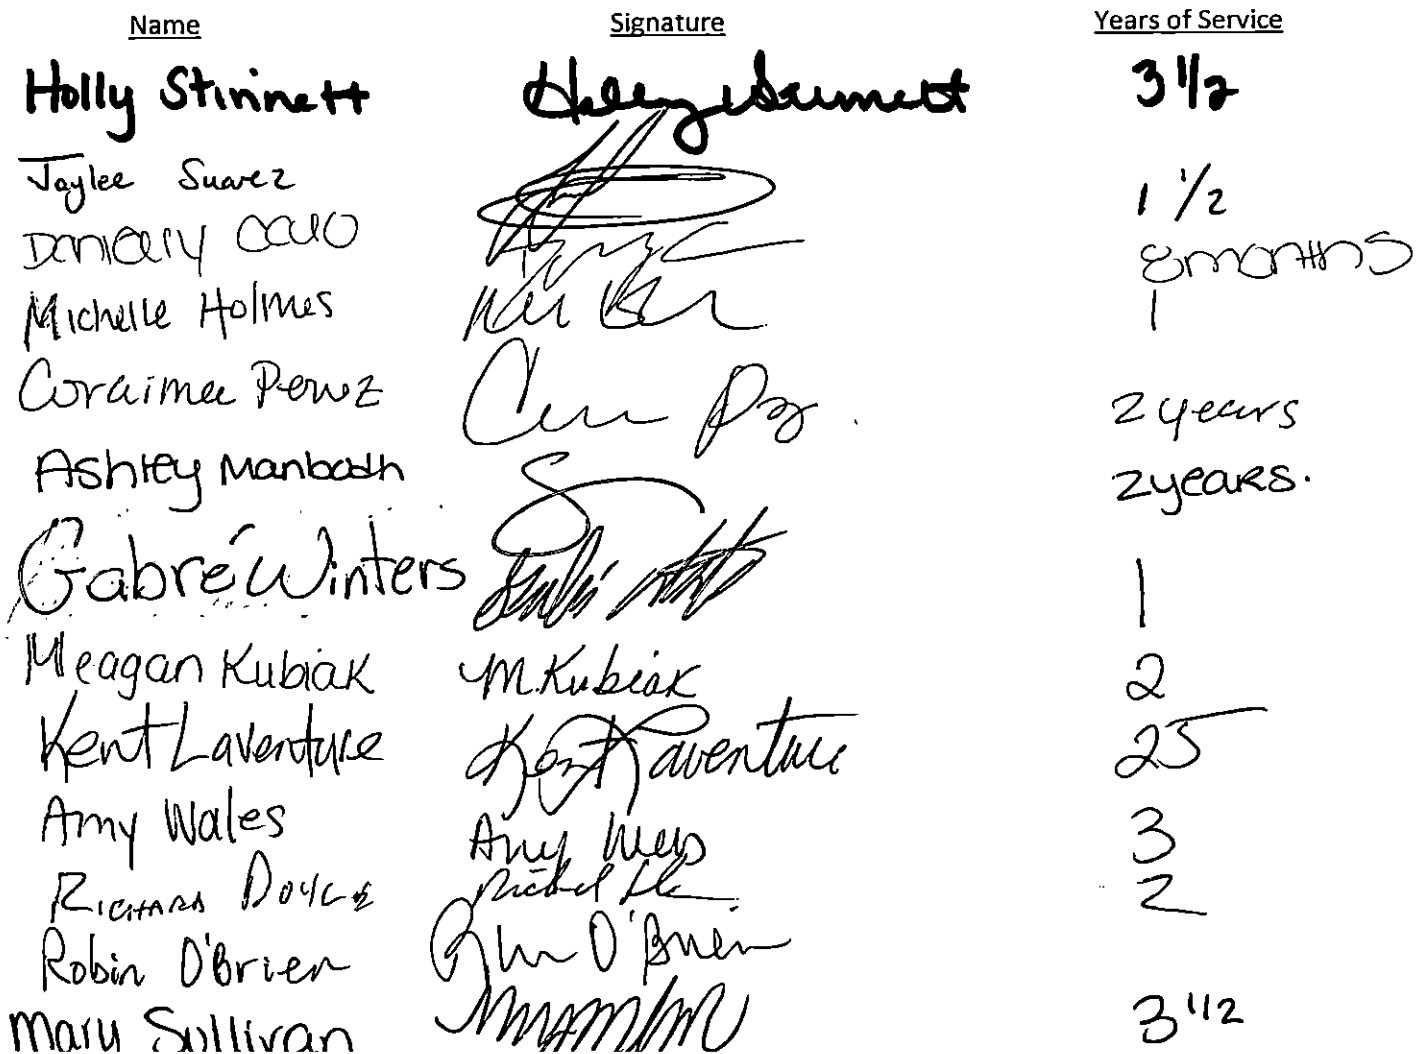 Name Signature Years of Service
Holly Stinnett Holly Stinnett 3 1/2
Jaylee Suarez 1 1/2
Daniely 8 months
Michelle Holmes 1
Coraimee Perez 2 years
Ashley Manbodh 2years.
Gabré Winters 1
Meagan Kubiak M. Kubiak 2
Kent Laventure Kent Laventure 25
Amy Wales Amy Wales 3
Richard Doyle 2
Robin O'Brien Robin O'Brien
Mary Sullivan 3 1/2